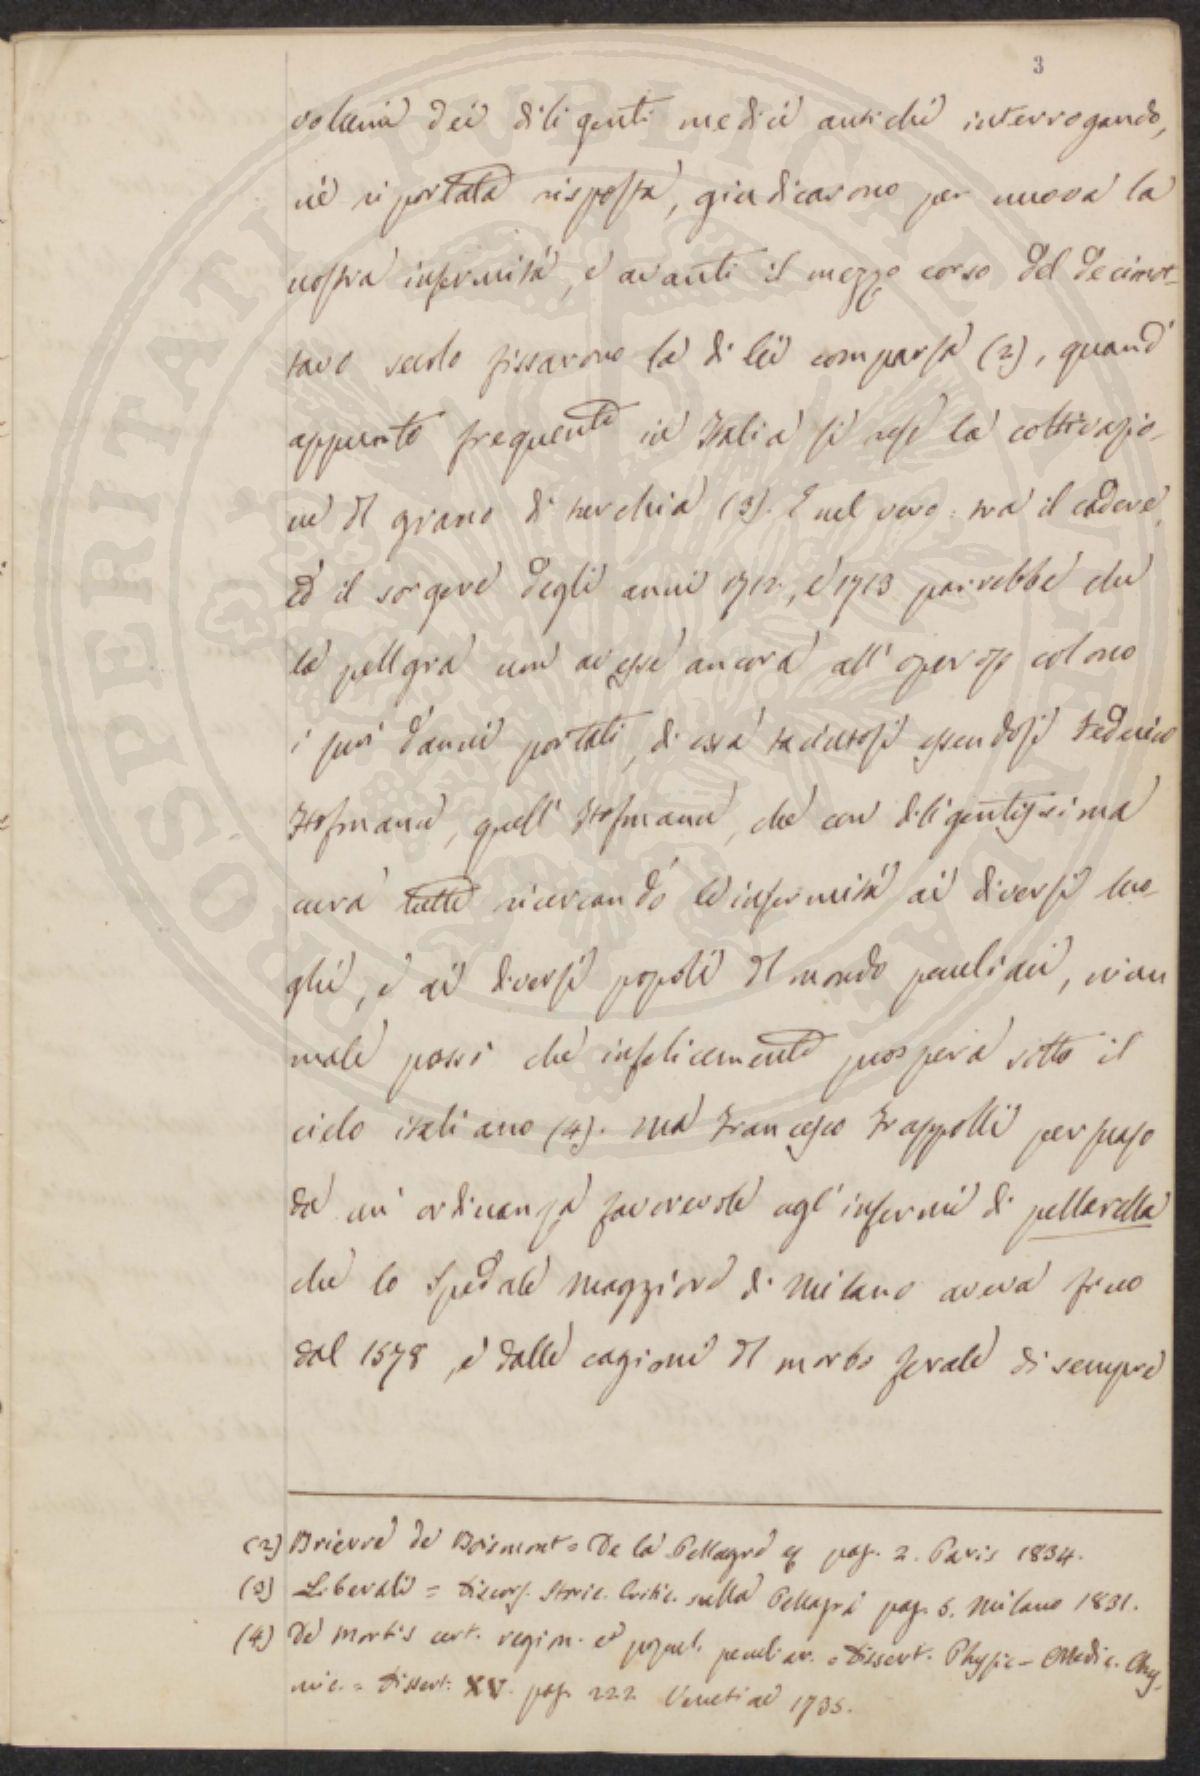 3
volumi dei diligenti medici antichi interrogando,
né riportata risposta, giudicarono per nuova la
nostra infermità, e avanti il mezzo corso del decimot-
tavo secolo fissarono la di lei comparsa (2), quand'
appunto frequente in Italia si rese la coltivazio-
ne del grano di turchia (3). E nel vero: tra il cadere,
ed il sorgere degli anni 1712, e 1713 parrebbe che
la pellgra non avesse ancora all' operoso colono
i suoi danni portati, di essa taciutosi essendosi Federico
Hofmann, quell' Hofmann, che con diligentissima
cura tutte ricercando le infermità ai diversi luo-
ghi, e ai diversi popoli del mondo peculiari,
male passò che infelicemente prospera sotto il
cielo italiano (4). Ma Francesco Frappolli persuaso
da un' ordinanza favorevole agl' infermi di pellarella
che lo Spedale Maggiore di Milano aveva fino
dal 1578, e dalle cagioni del morbo ferale di sempre
(2) Brierre de Boismont = De la Pellagre pag. 2. Paris 1834.
(3) Liberali = Discors. Storic. Critic. sulla Pellagra pag. 5. Milano 1831.
(4) De Morbis cert. region. et popul. peculiar. = Dissert. Physic - Medic. Chy-
mic. = Dissert. XV. pag. 222 Venetiae 1735.
PROSPERITATI PUBLICAE